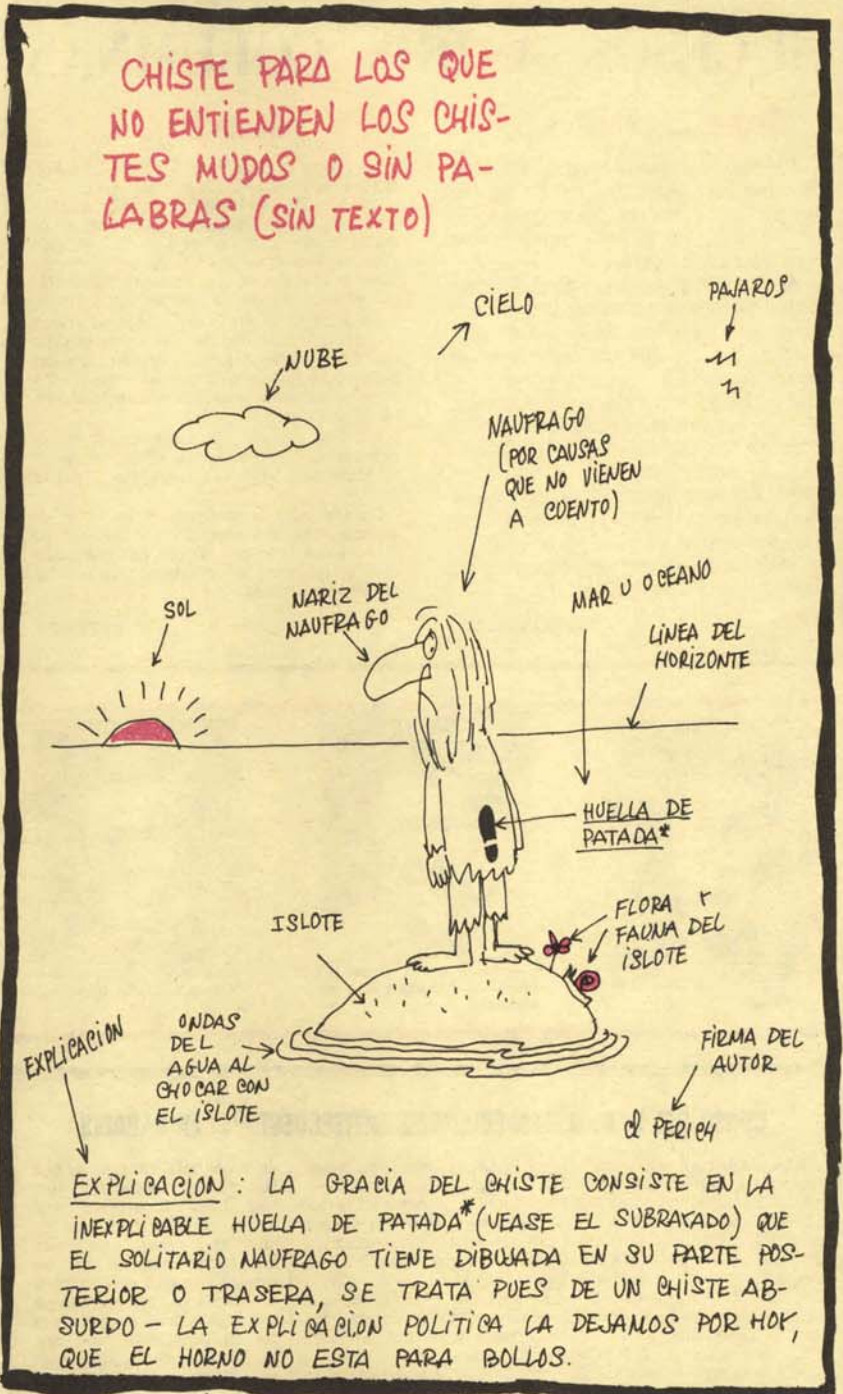 CHISTE PARA LOS QUE
NO ENTIENDEN LOS CHIS-
TES MUDOS O SIN PA-
LABRAS (SIN TEXTO)
CIELO
PAJAROS
NUBE
NAUFRAGO
(POR CAUSAS
QUE NO VIENEN
A CUENTO)
SOL
NARIZ DEL
NAUFRAGO
MAR U OCEANO
LINEA DEL
HORIZONTE
HUELLA DE
PATADA*
ISLOTE
FLORA Y
FAUNA DEL
ISLOTE
EXPLICACION
ONDAS
DEL
AGUA AL
CHOCAR CON
EL ISLOTE
FIRMA DEL
AUTOR
el PERICH
EXPLICACION: LA GRACIA DEL CHISTE CONSISTE EN LA
INEXPLICABLE HUELLA DE PATADA* (VEASE EL SUBRAYADO) QUE
EL SOLITARIO NAUFRAGO TIENE DIBUJADA EN SU PARTE POS-
TERIOR O TRASERA, SE TRATA PUES DE UN CHISTE AB-
SURDO - LA EXPLICACION POLITICA LA DEJAMOS POR HOY,
QUE EL HORNO NO ESTA PARA BOLLOS.